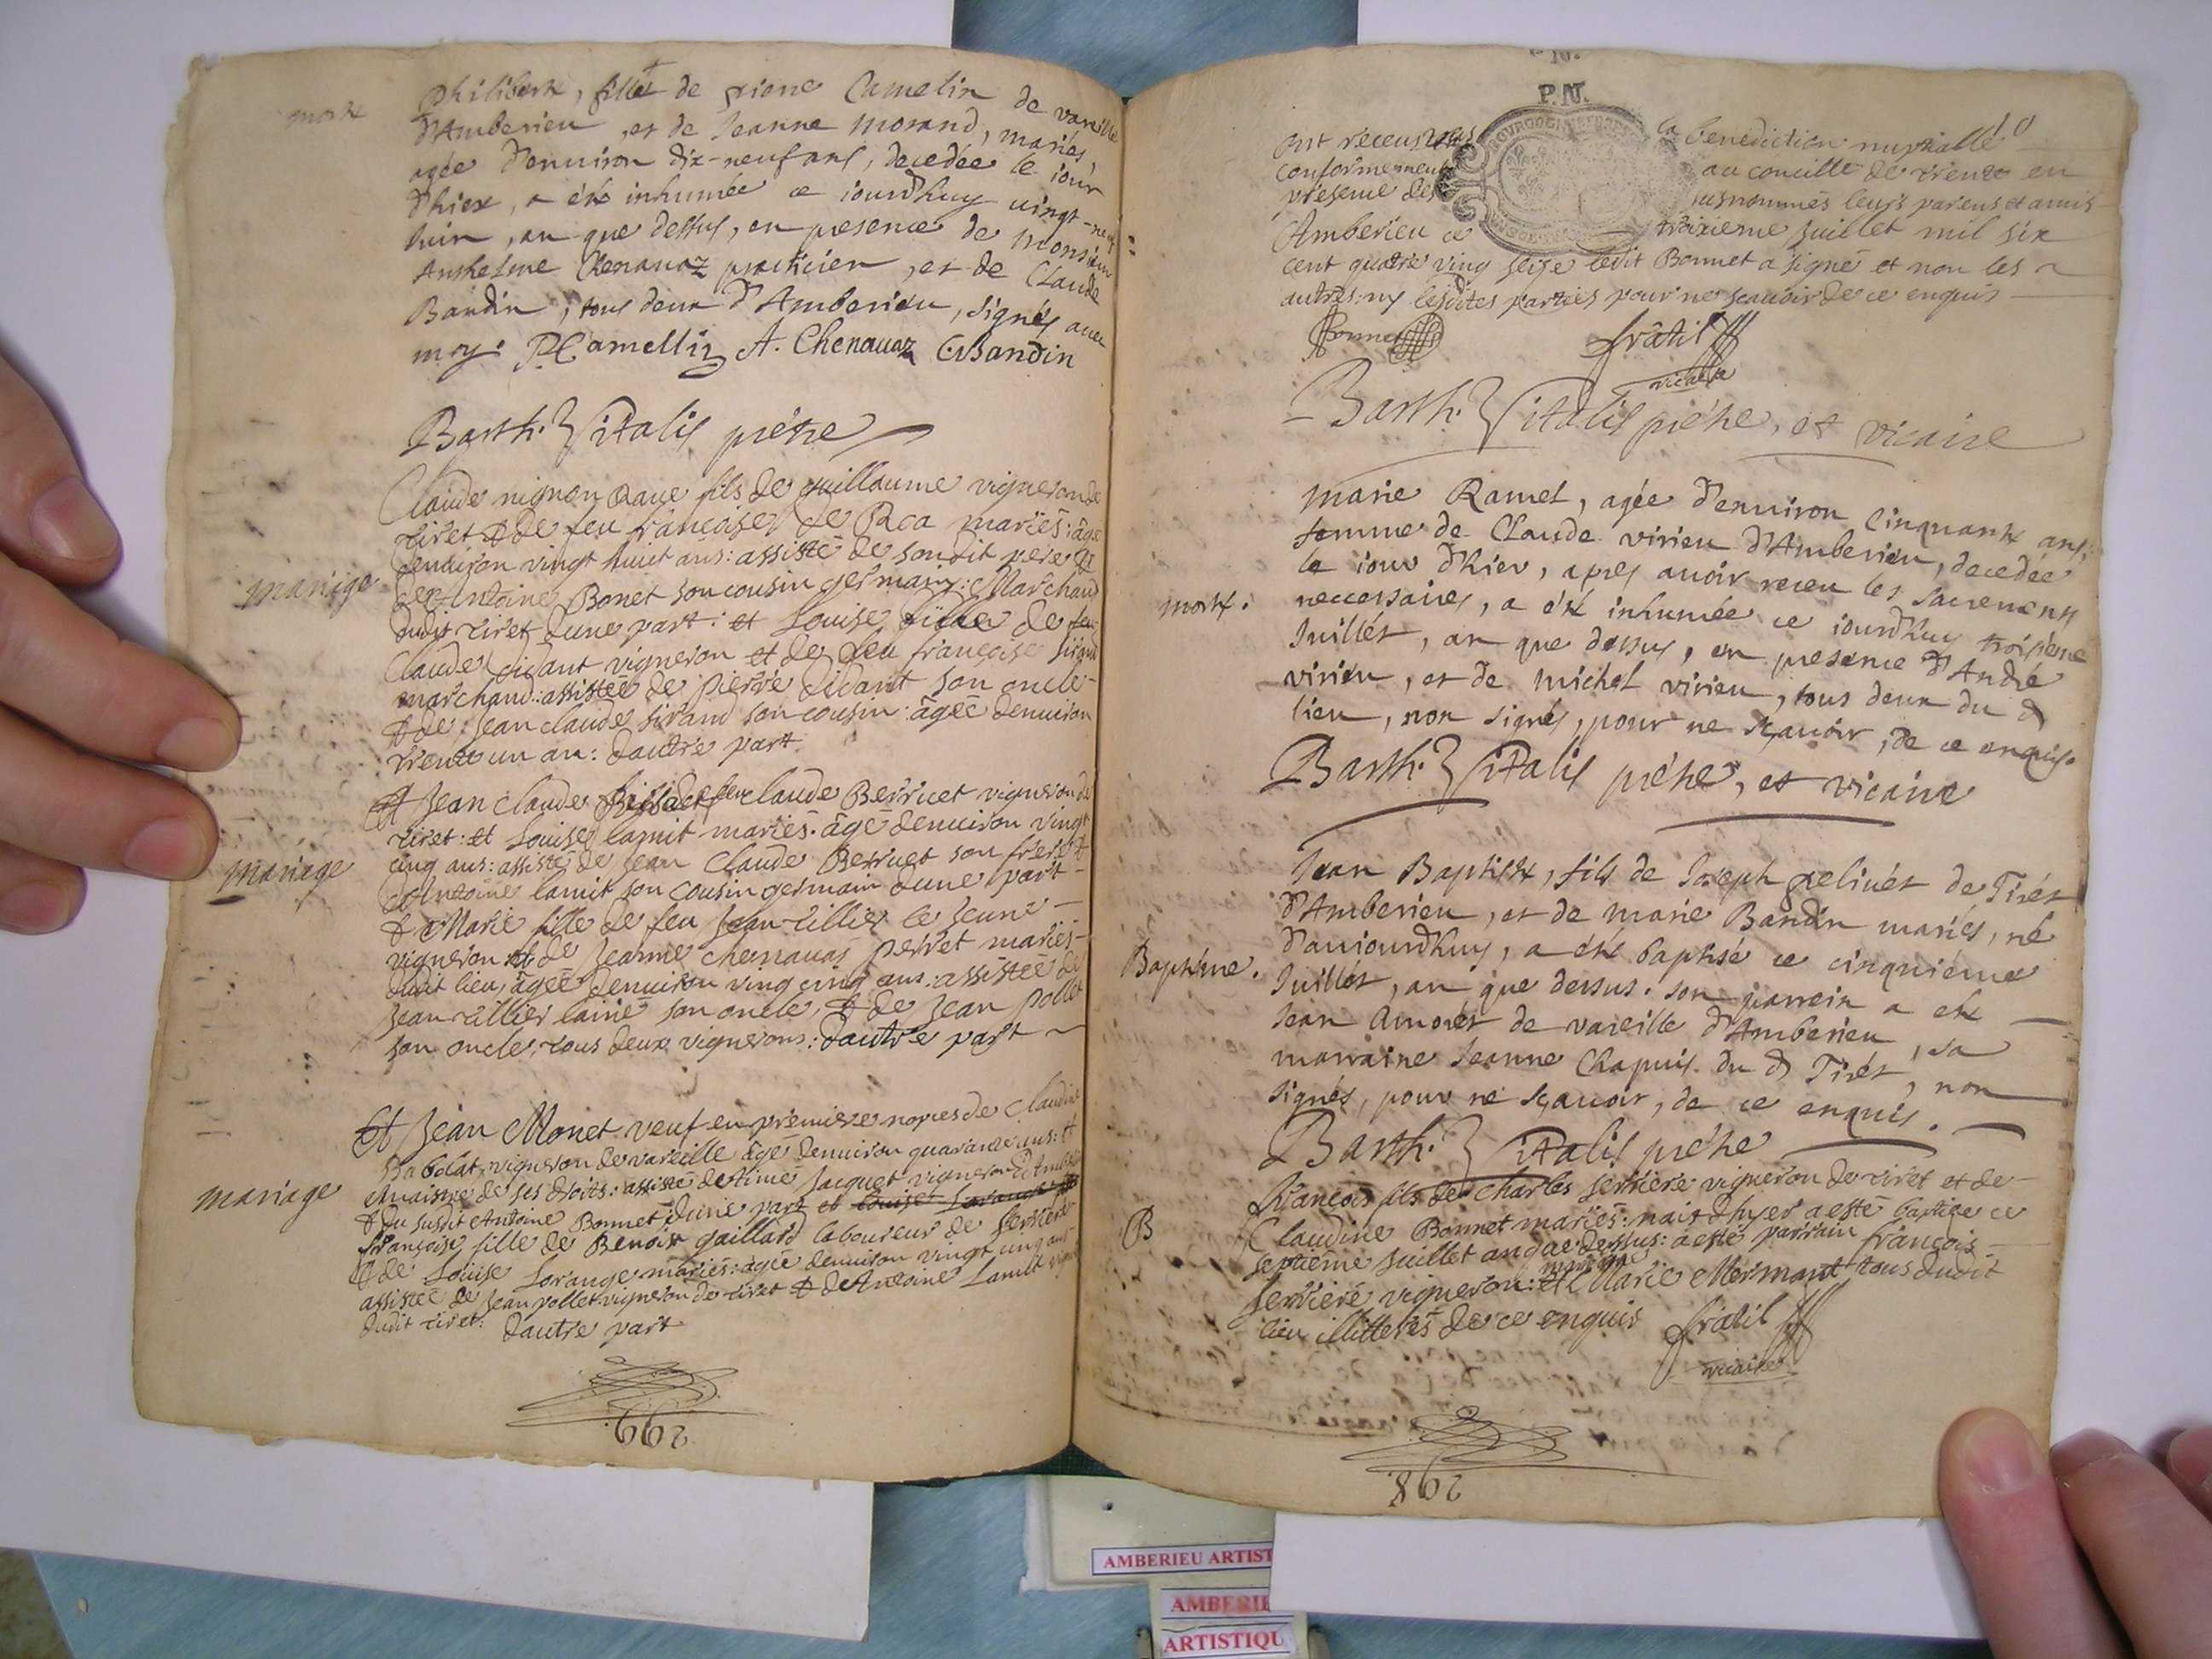 morte
Philiberte, fille de pierre Camelin de vareille
d'Amberieu, et de Jeanne Morand, mariés,
agée d'enuiron dix-neuf ans, decedée le iour
d'hier, a été inhumée ce iourd'huy uingt-neuf
Juin, an que dessus, en presence de Monsieur
Anthelme Chenauaz practicien, et de Claude
Baudin, tous deux d'Amberieu, signés auec
moy. P Camellin A. Chenauaz C. Baudin
Barth. Vitalis prétre
Claude fils de guillaume vigneron de
tiret & de feu françoise mariés: âgé
denuiron vingt huict ans: assisté de sondit pere &
de Antoine Bonet son cousin germain: Marchand
mariage
dudit tiret dune part: et Louise fille de feu
Claude didant vigneron et de feu françoise sirand
marchand: assistée de pierre didant son oncle
& de Jean claude sirand son cousin: âgée denuiron
trente un an: dautre part
Et Jean claude fils de feu claude Berruet vigneron de
tiret: et Louise lamit mariés. âgé denuiron vingt
cinq ans: assisté de Jean Claude Berruet son frere &
mariage
dAntoine lamit son cousin germain dune part
& Marie fille de feu Jean tillier le Jeune
vigneron & de Jeanne chenauas perret mariés
dudit lieu, âgée denuiron ving cinq ans: assistée de
Jean tillier lainé son oncle, & de Jean pollet
son oncle, tous deux vignerons: dautre part
Et Jean Monet veuf en premiere nopces de Claudine
Babolat, vigneron de vareille âgé denuiron quarante ans: et
mariage
maistre de ses droits: assisté de timé Jacquet vigneron dAmberieu
& du susdit Antoine Bonnet dune part et Louise Lorange
françoise fille de Benoist gaillard laboureur de
& de Louise Lorange mariés: âgée denuiron vingt cinq ans
assistée de Jean pollet vigneron de tiret & de Antoine Lamit
dudit tiret: dautre part
299.
P.N.
10
ont receus la benediction nuptialle
conformement au concille de trente en
presence des susnommés leurs parens et amis
Amberieu ce troixieme Juillet mil six
cent quatre ving seise ledit Bonnet a signé et non les
autres: ny lesdites parties pour ne scauoir de ce enquis
Bonnet fratil
vicaire
Barth. Vitalis prétre, et vicaire
Marie Ramel, agée d'enuiron cinquante ans,
femme de Claude virieu d'Amberieu, decedée
le iour d'hier, apres auoir receu les sacremens
morte.
neccessaires, a été inhumée ce iourd'huy troisième
Juillet, an que dessus, en presence d'André
virieu, et de michel virieu, tous deux du d
lieu, non signés, pour ne sçauoir, de ce enquis.
Barth. Vitalis prétre, et vicaire
Jean Baptiste, fils de Joseph gelinet de Tiret
d'Amberieu, et de marie Baudin mariés, né
d'auiourd'huy, a été baptisé ce cinquiéme
Baptéme.
Juillet, an que dessus. son parrein a été
Jean Amoret de vareille d'Amberieu, sa
marraine Jeanne Chapuis. du d Tiret, non
signés, pour ne sçauoir, de ce enquis.
Barth. Vitalis prétre
françois fils de charles serriere vigneron de tiret et de
B
Claudine Bonnet mariés: naist dhyer a esté baptise ce
septieme Juillet an que dessus: a esté parrain françois
marraine
serriere vigneron: et Marie Mermant tous dudit
lieu illitterés de ce enquis fratil
vicaire
298.
AMBERIEU ARTIST
AMBERIE
ARTISTIQU